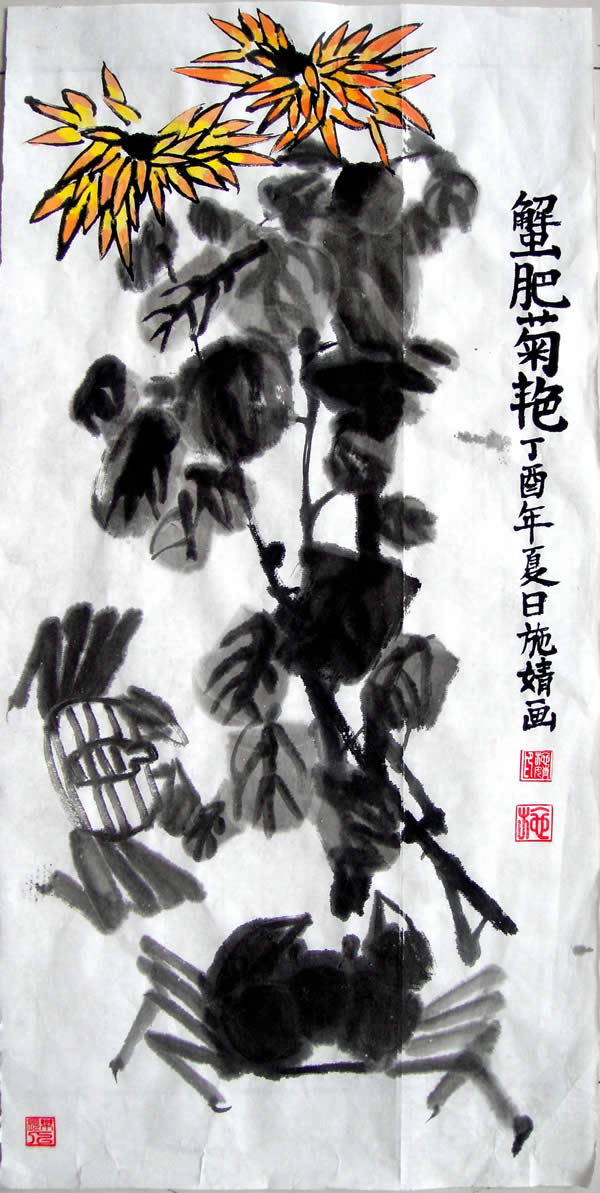 蟹肥菊艳丁酉年夏日施婧画